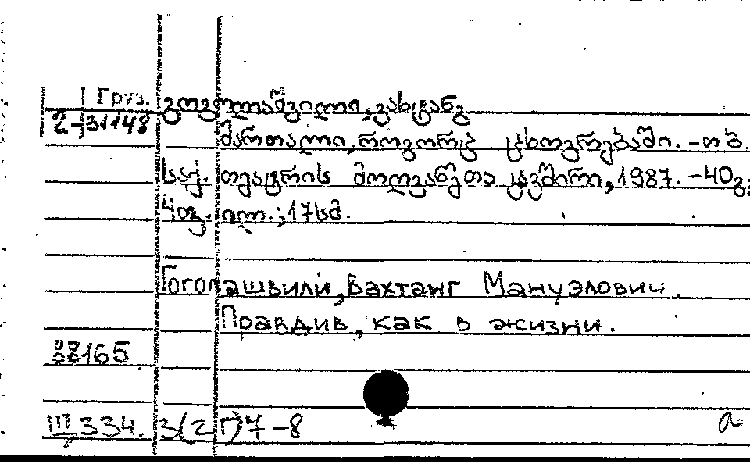 Груз.
2-31148
გოგოლაშვილი, ვახტანგ
მართალი, როგორც ცხოვრებაში. - თბ.
საქ. თეატრის მოღვაწეთა კავშირი, 1987. - 40გ;
4ფ. ილ.; 17სმ.
Гоголашвили, Вахтанг Мануэлович.
Правдив, как в жизни.
33165
III 334. 3(2Г)7-8 а